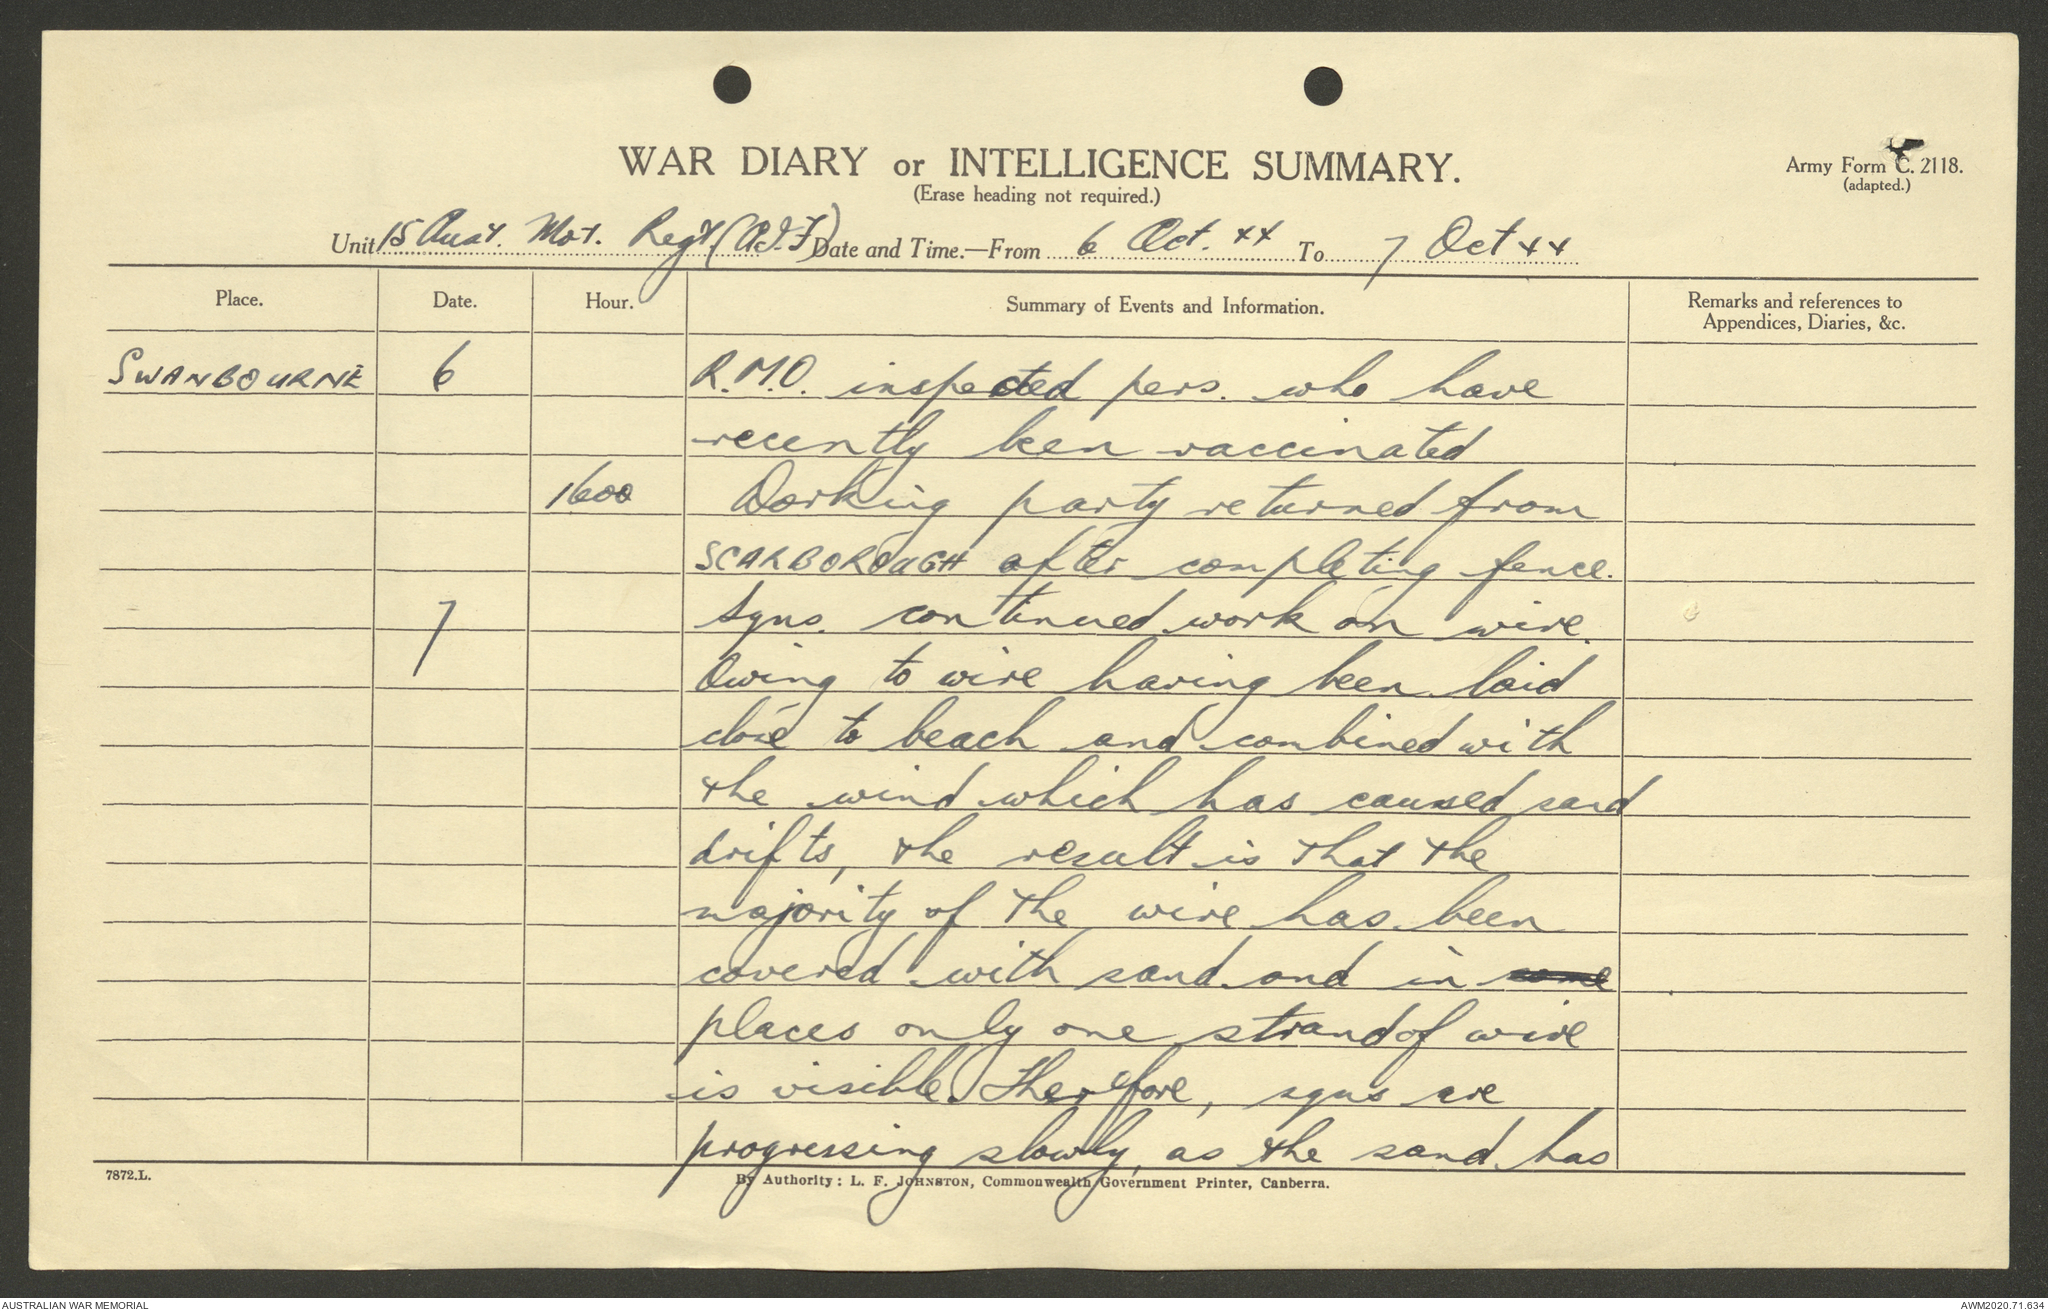 WAR DIARY or INTELLIGENCE SUMMARY.
(Erase heading not required.)
Army Form C. 2118.
(adapted.)
Unit 15 Aust. Mot. Regt (A.I.F) Date and Time.—From 6 Oct. 44 To 7 Oct 44
Place. Date. Hour. Summary of Events and Information. Remarks and references to
Appendices, Diaries, &c.
SWANBOURNE 6 R.M.O. inspected pers. who have
recently been vaccinated
1600 Working party returned from
SCARBOROUGH after completing fence.
7 Sqns. continued work on wire.
Owing to wire having been laid
close to beach and combined with
the wind which has caused sand
drifts, the result is that the
majority of the wire has been
covered with sand and in some
places only one strand of wire
is visible. Therefore, sqns are
progressing slowly, as the sand has
7872.L.
By Authority: L. F. JOHNSTON, Commonwealth Government Printer, Canberra.
AUSTRALIAN WAR MEMORIAL
AWM2020.71.634